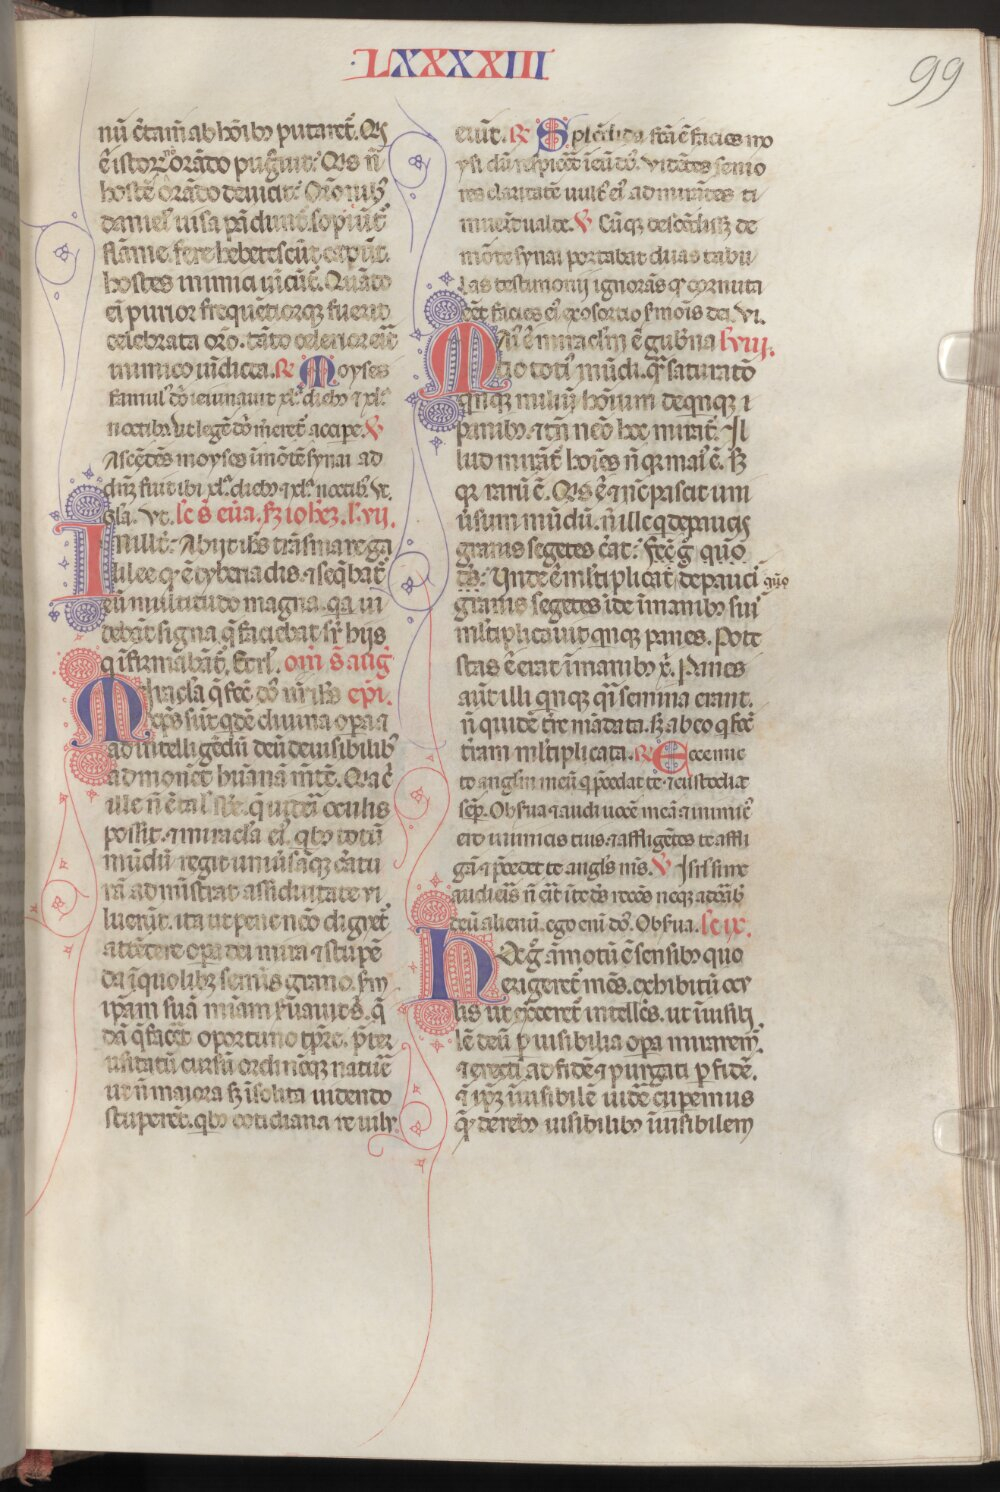 LXXXXIII
99
nū c̄tam̄ ab hōībꝫ putaret᷑. Qͥs
ē istoꝝ nō orādo pugͣuit: Qͥs n̄
hostē orādo deuicit: Oīo nūbꝫ
daniel᷑ uisa pādūnt᷑. sopiūt᷑
flāme. fere hebetescūt. capiūt᷑.
hostes inimici uicūt᷑. Quāto
ei purior frequētiorqꝫ fuerit
celebrata or̄o. tāto celerior erit
inimico uīdicta. ℞ Moyses
famul᷑ dō ieiunauit xl. diebꝫ ⁊ xl.
noctibꝫ. Ut legē dn̄i meret᷑ accipe. ℣
Ascēdēs moyses ī mōtē synai ad
dn̄m fuit ibi xl. diebꝫ ⁊ xl. noctibꝫ. Ut.
Gl̄a. Vt. lc̄ s̄ eūa. sꝫ iohēz. l. vii.
In ill̄ t̄: Abijt ih̄s trās mare ga
lilee qͥ ē tyberiadis. ⁊ seqͣbat᷑
eū multitudo magna. qͣ ui
debāt signa q̄ faciebat sr̄ hijs
qͥ īfirmabāt᷑. Et rl̄. om̄ s̄ aug᷑
Miracl̄a q̄ fec̄ dn̄s nr̄ ih̄s epī.
xp̄s sūt qͥdē diuina opa. ⁊
ad intelligēdū deū de uisibilibꝫ
admonēt humanā mētē. Quia
ille n̄ ē tal̄ sb̄a. q̄ uideri oculis
possit. ⁊ miracl̄a ei᷑. qͥbꝫ totū
mūdū regit uniusāqꝫ creatu
rā administrat assiduitate ui
luerūt. ita ut pene nēo dignet᷑
attēdere opa dei mira ⁊ stupē
da ī quolibꝫ semīs grano. sm̄
ip̄am suā mīam s̄uauit s̄. q̄
dā q̄ facēt oportuno tp̄re. p̄ter
usitatū cursū ordinēqꝫ nature
ut n̄ maiora sꝫ īsolita uidendo
stuperēt. qͥbꝫ cotidiana re uilu
erūt. ℞ Splēdida facta ē facies mo
ysi dū respiceret ī eū dn̄s. Vidētes senio
res claritatē uult᷑ ei᷑ admirātes ti
muerūt ualde. ℣ Cūqꝫ descēdisꝫ de
mōte synai portabat duas tabu
las testimonij ignorās qͥ cornuta
eēt facies ei᷑ ex osortio s̄mois dei. Vi.
Mai᷑ ē miracl̄m ē gub̄na l. viij.
tio toti᷑ mūdi. qͣ saturatō
qnqꝫ miliū hōium de qnqꝫ
panibꝫ. ⁊ tn̄ nēo hoc mirat᷑. Il
lud mirāt᷑ hoīes n̄ qꝛ mai᷑ ē. sꝫ
qꝛ rarū ē. Qͥs ē ⁊ nūc pascit uni
ūsum mūdū. n̄ ille q̄ de paucis
granis segetes c̄at: Fec̄ ḡ quō
ds̄: Unde ē ml̄tiplicat᷑ de pauci᷑ quō
granis segetes īde ī manibꝫ sui᷑
ml̄tiplicauit qnqꝫ panes. Pote
stas ē erat ī manibꝫ x̄. Panes
aūt illi qnqꝫ qͣi semina erant.
n̄ quidē tr̄e mādata. sꝫ ab eo q̄ fec̄
tr̄am ml̄tiplicata. ℞ Ecce mit
to angl̄m meū q̄ p̄cedat te ⁊ custodiat
sēp. Obs̄ua ⁊ audi uocē meā ⁊ inimic᷑
ero inimicis tuis ⁊ affligētes te affli
gā ⁊ p̄cedet te angl̄s m̄s. ℣ Isrl̄ si me
audieris n̄ erit ī te ds̄ recēs neqꝫ adorabꝫ
deū alienū. ego enī dn̄s. Obs̄ua. lc̄ ix.
Hoc ḡ āmotū ē sensibꝫ quo
erigeret᷑ mēs. exhibitū ocu
lis ut exerceret᷑ intellēs. ut īuisibi
lē deū p uisibilia opa mirarem᷑.
⁊ erecti ad fidē ⁊ purgati p fidē.
⁊ ip̄ꝫ īuisibilē uidē cupemus
qͣ de rebꝫ uisibilibꝫ īuisibilem